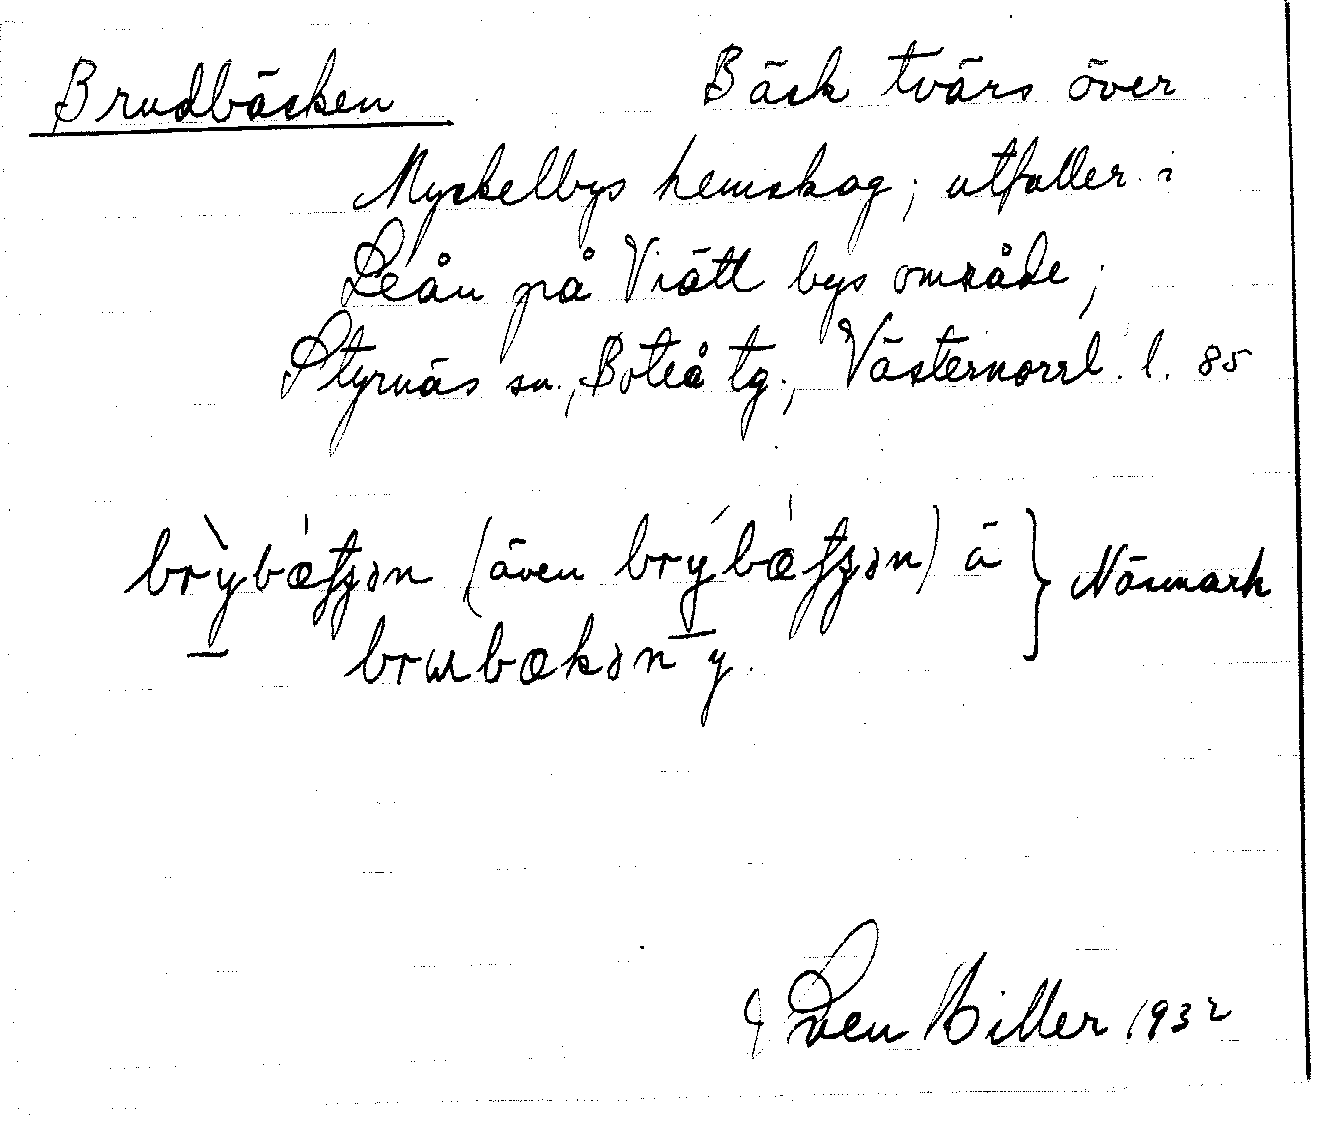 Brudbäcken Bäck tvärs över
Myckelbys hemskog; utfaller i
Leån på Viätt bys område;
Styrnäs sn., Boteå tg., Västernorrl. l. 85
brỳbæ̀ʈʂən (även brýbæ̀ʈʂən) ä } Näsmark
brɯbækən y.
Sven Hiller 1932